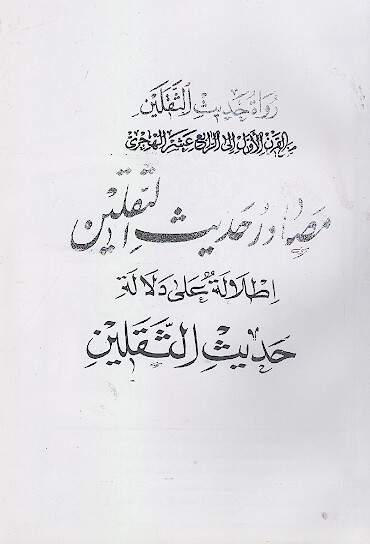 رُوَاةُ حَدِيثِ الثَّقَلَيْنِ
مِنَ الْقَرْنِ الْأَوَّلِ إِلَى الرَّابِعِ عَشَرَ الْهِجْرِيِّ
مصادر حديث الثقلين
إِطْلَالَةٌ عَلَى دَلَالَةِ
حَدِيثِ الثَّقَلَيْنِ